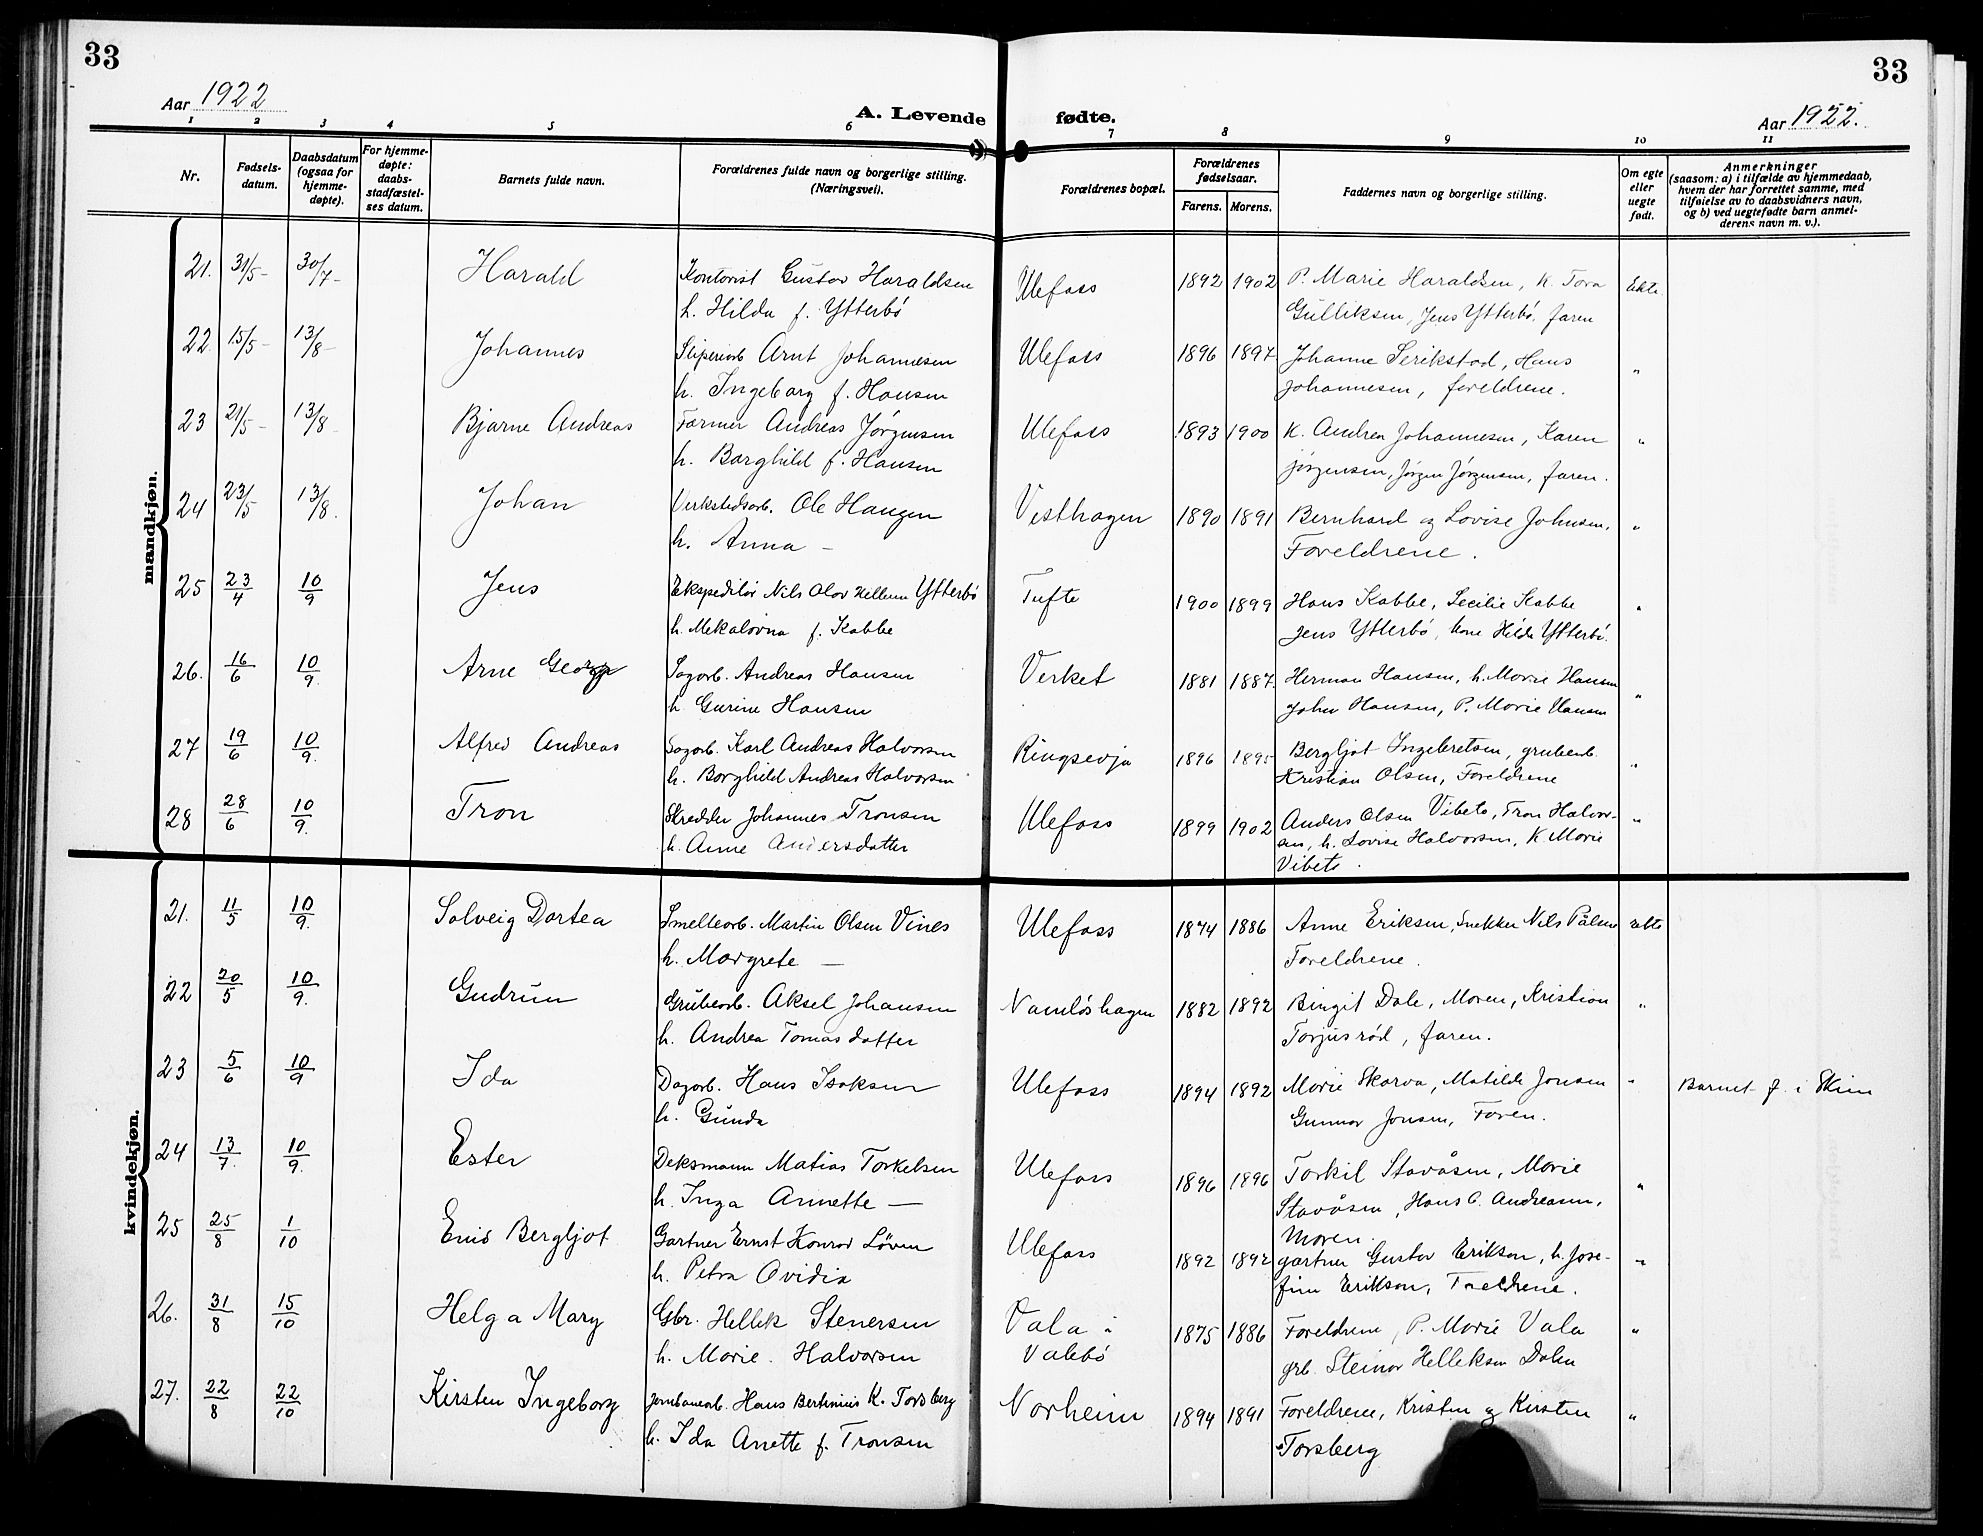 33
33
Aar 1922
A. Levende fødte.
Aar 1922.
1 2 3 4 5 6 7 8 9 10 11
Nr.
Fødsels-
datum.
Daabsdatum
(ogsaa for
hjemme-
døpte).
For hjemme-
døpte:
daabs-
stadfæstel-
ses datum.
Barnets fulde navn.
Forældrenes fulde navn og borgerlige stilling.
(Næringsvei).
Forældrenes bopæl.
Forældrenes
fødselsaar.
Farens. Morens.
Faddernes navn og borgerlige stilling.
Om egte
eller
uegte
født.
Anmerkninger
(saasom: a) i tilfælde av hjemmedaab,
hvem der har forrettet samme, med
tilføielse av to daabsvidners navn,
og b) ved uegtefødte barn anmel-
derens navn m. v.).
mandkjøn.
21. 31/5- 30/7- Harald Kontorist Gustav Haraldsen Ulefoss 1892 1902 P. Marie Haraldsen, K. Tora Ekte
h. Hilda f. Ytterbø Gulliksen, Jens Ytterbø, faren
22 15/5- 13/8- Johannes Sliperiarb Arnt Johannesen Ulefoss 1896 1897 Johanne Serikstad, Hans "
h. Ingeborg f. Hansen Johannesen, foreldrene.
23 21/5- 13/8- Bjarne Andreas Farmer Andreas Jørgensen Ulefoss 1893 1900 K. Andrea Johannesen, Karen "
h. Borghild f. Hansen Jørgensen, Jørgen Jørgensen, faren.
24 23/5 13/8. Johan Verkstedsarb. Ole Haugen Vesthagen 1890 1891 Bernhard og Lovise Johnsen, "
h. Anna — Foreldrene.
25 23/4 10/9 Jens Ekspeditør Nils Olav Hellem Ytterbø Tufte 1900 1899 Hans Kabbe, Cecilie Kabbe "
h. Mekalovna f. Kabbe Jens Ytterbø, kone Hilda Ytterbø.
26. 16/6 10/9. Arne Georg Sagarb. Andreas Hansen Verket 1881 1887. Herman Hansen, h. Marie Hansen "
h. Gurine Hansen John Hansen, P. Marie Hansen
27 19/6 10/9. Alfred Andreas Sagarb. Karl Andreas Halvorsen Ringsevja 1896 1895 Bergljot Ingebretsen, grubearb. "
h. Borghild Andreas Halvorsen Kristian Olsen, Foreldrene
28 28/6 10/9. Tron Skredder Johannes Tronsen Ulefoss 1899 1902 Anders Olsen Vibeto, Tron Halvor- "
h. Anne Andersdatter sen, h. Lovise Halvorsen, K. Marie
Vibeto.
kvindekjøn.
21. 11/5 10/9. Solveig Dortea Smelteorb. Martin Olsen Vines Ulefoss 1874 1886 Anne Eriksen, Snekker Nils Pålsen ekte
h. Margrete — Foreldrene.
22 20/5 10/9. Gudrun Grubearb. Aksel Johansen Namløshagen 1882 1892 Bingit Dale, Moren, Kristian "
h. Andrea Tomasdatter Torjusrød, faren.
23 5/6 10/9 Ida Dagarb. Hans Isaksen Ulefoss 1894 1892 Marie Skarva, Matilde Jonsen " Barnet f. i Skien
h. Gunda Gunnar Jonsen, Faren.
24 13/7. 10/9. Ester Deksmann Matias Torkelsen Ulefoss 1896 1896 Torkil Stavåsen, Marie "
h. Inga Annette — Stavåsen, Hans C. Andreasen,
Moren.
25 25/8 1/10 Enid Bergljot Gartner Ernst Konrad Løven Ulefoss 1892 1892 gartner Gustav Erikson, h. Jose- "
h. Petra Ovidia fine Erikson, Foreldrene.
26. 31/8 15/10 Helga Mary Gbr. Hellek Stenersen Vala i 1875 1886 Foreldrene, P. Marie Vala "
h. Marie. Halvorsen Valebø grb. Steinar Helleksen Dalen
27. 22/8 22/10 Kirsten Ingeborg Jernbanearb. Hans Bertinius K. Torsberg Norheim 1894 1891 Foreldrene, Kristen og Kirsten "
h. Ida Anette f. Tronsen Torsberg